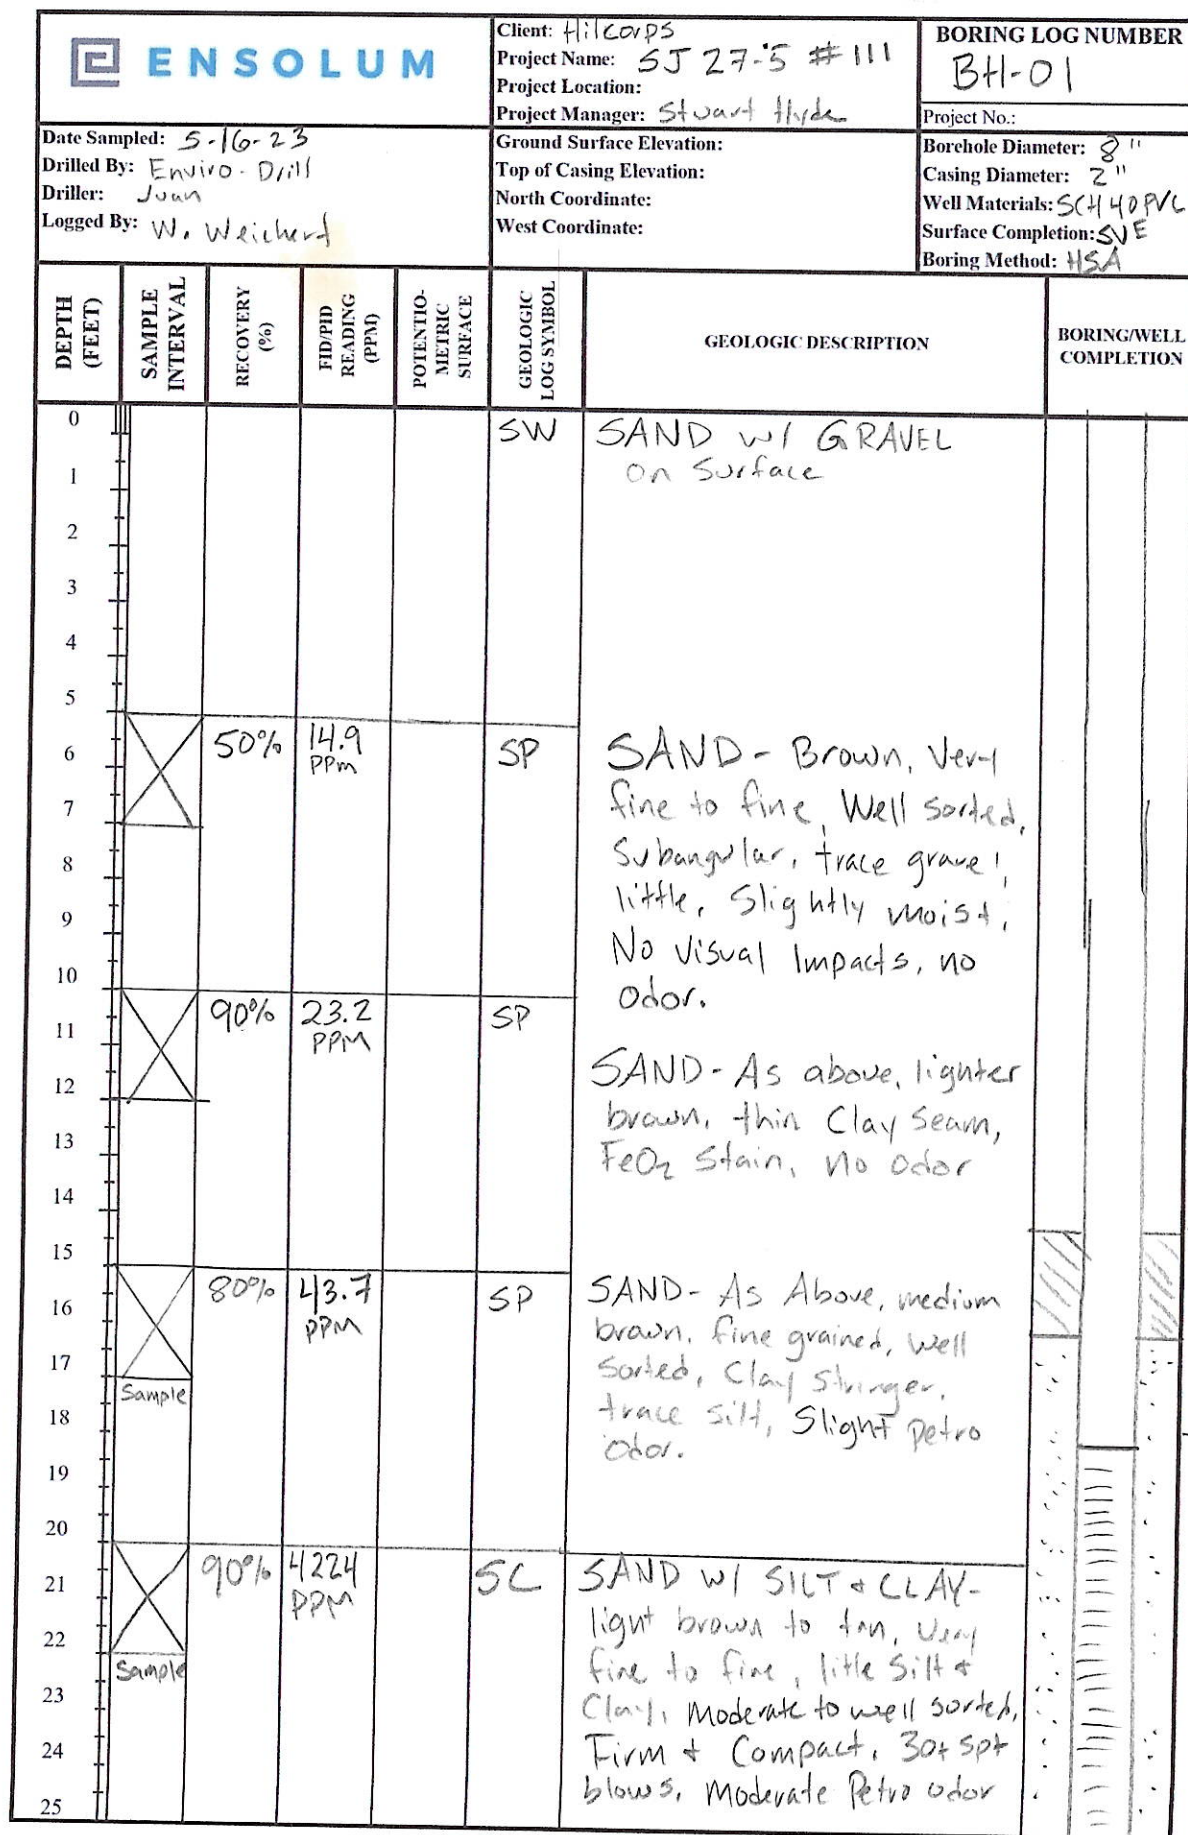 ENSOLUM
Client: Hilcorps
Project Name: SJ 27-5 # 111
Project Location:
Project Manager: Stuart Hyde
BORING LOG NUMBER
BH-01
Project No.:
Date Sampled: 5-16-23
Drilled By: Enviro-Drill
Driller: Juan
Logged By: W. Weichert
Ground Surface Elevation:
Top of Casing Elevation:
North Coordinate:
West Coordinate:
Borehole Diameter: 8"
Casing Diameter: 2"
Well Materials: SCH 40 PVC
Surface Completion: SVE
Boring Method: HSA
DEPTH (FEET)
SAMPLE INTERVAL
RECOVERY (%)
FID/PID READING (PPM)
POTENTIO-METRIC SURFACE
GEOLOGIC LOG SYMBOL
GEOLOGIC DESCRIPTION
BORING/WELL COMPLETION
0
SW
SAND w/ GRAVEL
on Surface
1
2
3
4
5
6
50%
14.9
PPm
SP
SAND - Brown, Very
fine to fine, Well Sorted,
Subangular, trace gravel,
little, Slightly moist,
No Visual Impacts, no
Odor.
7
8
9
10
11
90%
23.2
PPM
SP
SAND - As above, lighter
brown, thin Clay Seam,
FeO2 Stain, No odor
12
13
14
15
16
80%
43.7
PPM
SP
SAND - As Above, medium
brown, fine grained, well
Sorted, Clay Stringer,
trace silt, Slight Petro
Odor.
17
Sample
18
19
20
21
90%
4224
PPM
SC
SAND W/ SILT & CLAY-
light brown to tan, Very
fine to fine, litle Silt &
Clay, Moderate to well sorted,
Firm & Compact, 30+ spt
blows, Moderate Petro odor
22
Sample
23
24
25